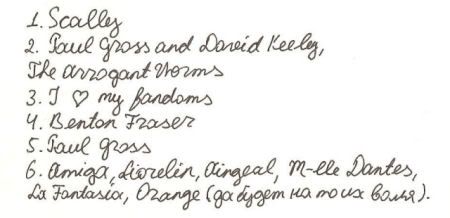 1. Scally
2. Paul Gross and David Keeley,
The Arrogant Worms
3. I ♡ my fandoms
4. Benton Fraser
5. Paul Gross
6. Amiga, Liorelin, Aingeal, M-lle Dantes,
La Fantasia, Orange (да будет на то их воля).